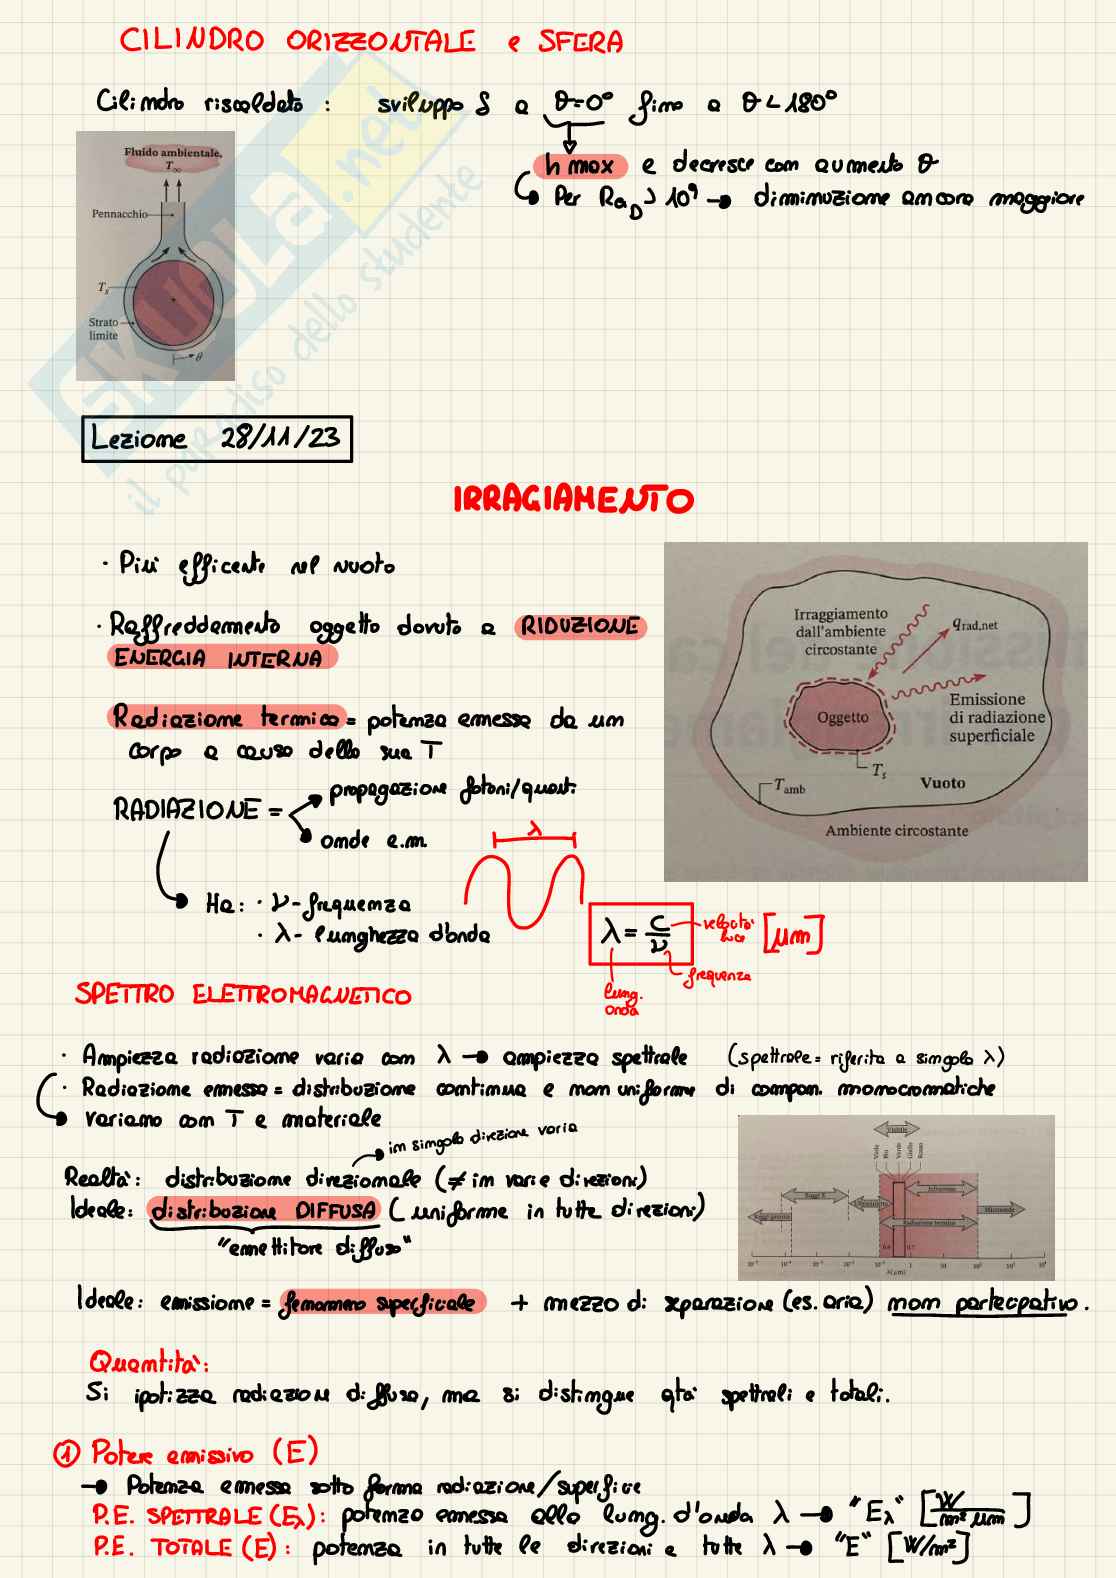 CILINDRO ORIZZONTALE e SFERA
Cilindro riscaldato : sviluppo δ a θ=0° fino a θ<180°
h max e decresce con aumento θ
Per Ra_D > 10⁹ → diminuzione ancora maggiore
Fluido ambientale,
T∞
Pennacchio
Ts
Strato
limite
θ
SKUOLA.net
il paradiso dello studente
Lezione 28/11/23
IRRAGIAMENTO
· Più efficente nel vuoto
· Raffreddamento oggetto dovuto a RIDUZIONE
ENERGIA INTERNA
Radiazione termica = potenza emessa da un
corpo a causa della sua T
RADIAZIONE =
propagazione fotoni/quanti
onde e.m.
Ha: · ν - frequenza
· λ - lunghezza d'onda
λ
λ = c/ν
velocità
luce
[μm]
frequenza
lung.
onda
Irraggiamento
dall'ambiente
circostante
q rad,net
Oggetto
Emissione
di radiazione
superficiale
Ts
T amb
Vuoto
Ambiente circostante
SPETTRO ELETTROMAGNETICO
· Ampiezza radiazione varia con λ → ampiezza spettrale (spettrale = riferita a singola λ)
· Radiazione emessa = distribuzione continua e non uniforme di compon. monocromatiche
variano con T e materiale
in singola direzione varia
Realtà: distribuzione direzionale (≠ in varie direzioni)
Ideale: distribuzione DIFFUSA (uniforme in tutte direzioni)
"emettitore diffuso"
Visibile
Viola
Blu
Verde
Giallo
Rosso
Raggi X
Infrarosso
Ultravioletto
Raggi gamma
Microonde
Radiazione termica
0.4
0.7
λ(μm)
Ideale: emissione = fenomeno superficiale + mezzo di separazione (es. aria) non partecipativo.
Quantità:
Si ipotizza radiazione diffusa, ma si distingue qtà spettrali e totali.
① Potere emissivo (E)
→ Potenza emessa sotto forma radiazione/superficie
P.E. SPETTRALE (Eλ): potenza emessa alla lung. d'onda λ → "Eλ" [W/m² μm]
P.E. TOTALE (E): potenza in tutte le direzioni e tutte λ → "E" [W/m²]